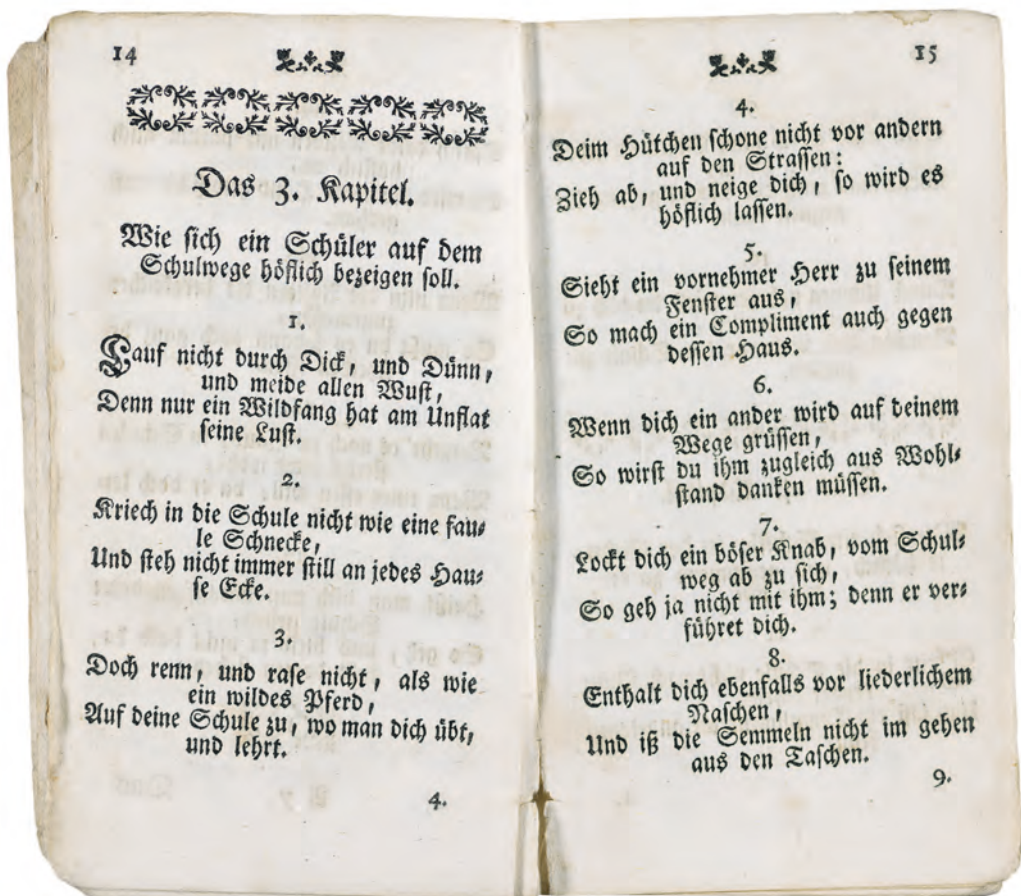 14
Das 3. Kapitel.
Wie sich ein Schüler auf dem
Schulwege höflich bezeigen soll.
1.
Lauf nicht durch Dick, und Dünn,
und meide allen Wust,
Denn nur ein Wildfang hat am Unflat
seine Lust.
2.
Kriech in die Schule nicht wie eine fau-
le Schnecke,
Und steh nicht immer still an jedes Hau-
se Ecke.
3.
Doch renn, und rase nicht, als wie
ein wildes Pferd,
Auf deine Schule zu, wo man dich übt,
und lehrt.
4.
15
4.
Deim Hütchen schone nicht vor andern
auf den Strassen:
Zieh ab, und neige dich, so wird es
höflich lassen.
5.
Sieht ein vornehmer Herr zu seinem
Fenster aus,
So mach ein Compliment auch gegen
dessen Haus.
6.
Wenn dich ein ander wird auf deinem
Wege grüssen,
So wirst du ihm zugleich aus Wohl-
stand danken müssen.
7.
Lockt dich ein böser Knab, vom Schul-
weg ab zu sich,
So geh ja nicht mit ihm; denn er ver-
führet dich.
8.
Enthalt dich ebenfalls vor liederlichem
Naschen,
Und iß die Semmeln nicht im gehen
aus den Taschen.
9.